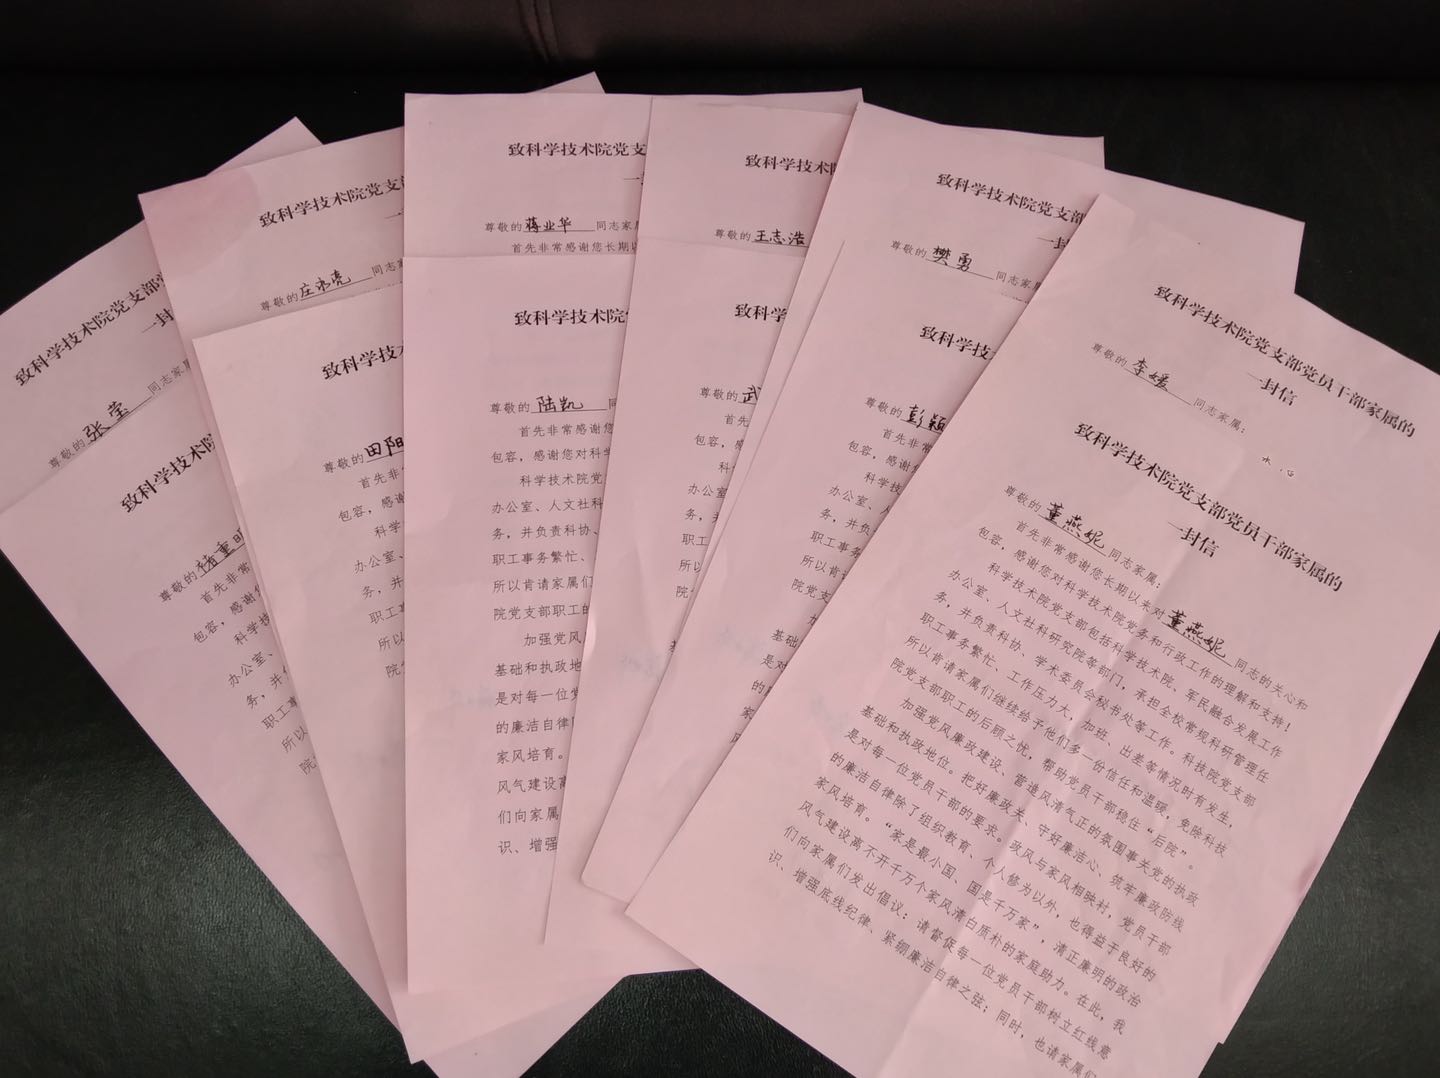 致科学技术院党支部
一封
尊敬的张莹同志家属
致科学技术院党支
一
尊敬的庄永亮同志家
致科学技术院党支
一封
尊敬的蒋业华同志家属
首先非常感谢您长期以
致科学技术院
尊敬的王志浩
致科学技术院党支部
一封
尊敬的樊勇同志家属
致科学技术院党支部党员干部家属的
一封信
尊敬的李媛同志家属：
致科学技术院
尊敬的褚重明
首先非常
包容，感谢
科学技
办公室、
务，并
职工事
所以
院
致科学技术
尊敬的田阳
首先非
包容，感谢
科学
办公室、
务，并
职工
所以
院
致科学技术院
尊敬的陆凯同
首先非常感谢您
包容，感谢您对科学
科学技术院党
办公室、人文社科
务，并负责科协、
职工事务繁忙、
所以肯请家属们
院党支部职工的
加强党风
基础和执政地
是对每一位党
的廉洁自律
家风培育。
风气建设离
们向家属
识、增强
致科学
尊敬的武
首先
包容，感
科
办公室
务，并
职工
所以
院党
致科学技
尊敬的彭颖
首先非常
包容，感谢
科学技
办公室、
务，并
职工事
所以
院
加
基础
是对
的
家
风
致科学技术院党支部党员干部家属的
一封信
尊敬的董燕妮同志家属：
首先非常感谢您长期以来对董燕妮同志的关心和
包容，感谢您对科学技术院党务和行政工作的理解和支持！
科学技术院党支部包括科学技术院、军民融合发展工作
办公室、人文社科研究院等部门，承担全校常规科研管理任
务，并负责科协、学术委员会秘书处等工作。科技院党支部
职工事务繁忙、工作压力大，加班、出差等情况时有发生，
所以肯请家属们继续给予他们多一份信任和温暖，免除科技
院党支部职工的后顾之忧，帮助党员干部稳住“后院”。
加强党风廉政建设、营造风清气正的氛围事关党的执政
基础和执政地位。把好廉政关、守好廉洁心、筑牢廉政防线
是对每一位党员干部的要求。政风与家风相映村，党员干部
的廉洁自律除了组织教育、个人修为以外，也得益于良好的
家风培育。“家是最小国、国是千万家”，清正廉明的政治
风气建设离不开千万个家风清白质朴的家庭助力。在此，我
们向家属们发出倡议：请督促每一位党员干部树立红线意
识、增强底线纪律、紧绷廉洁自律之弦；同时，也请家属们